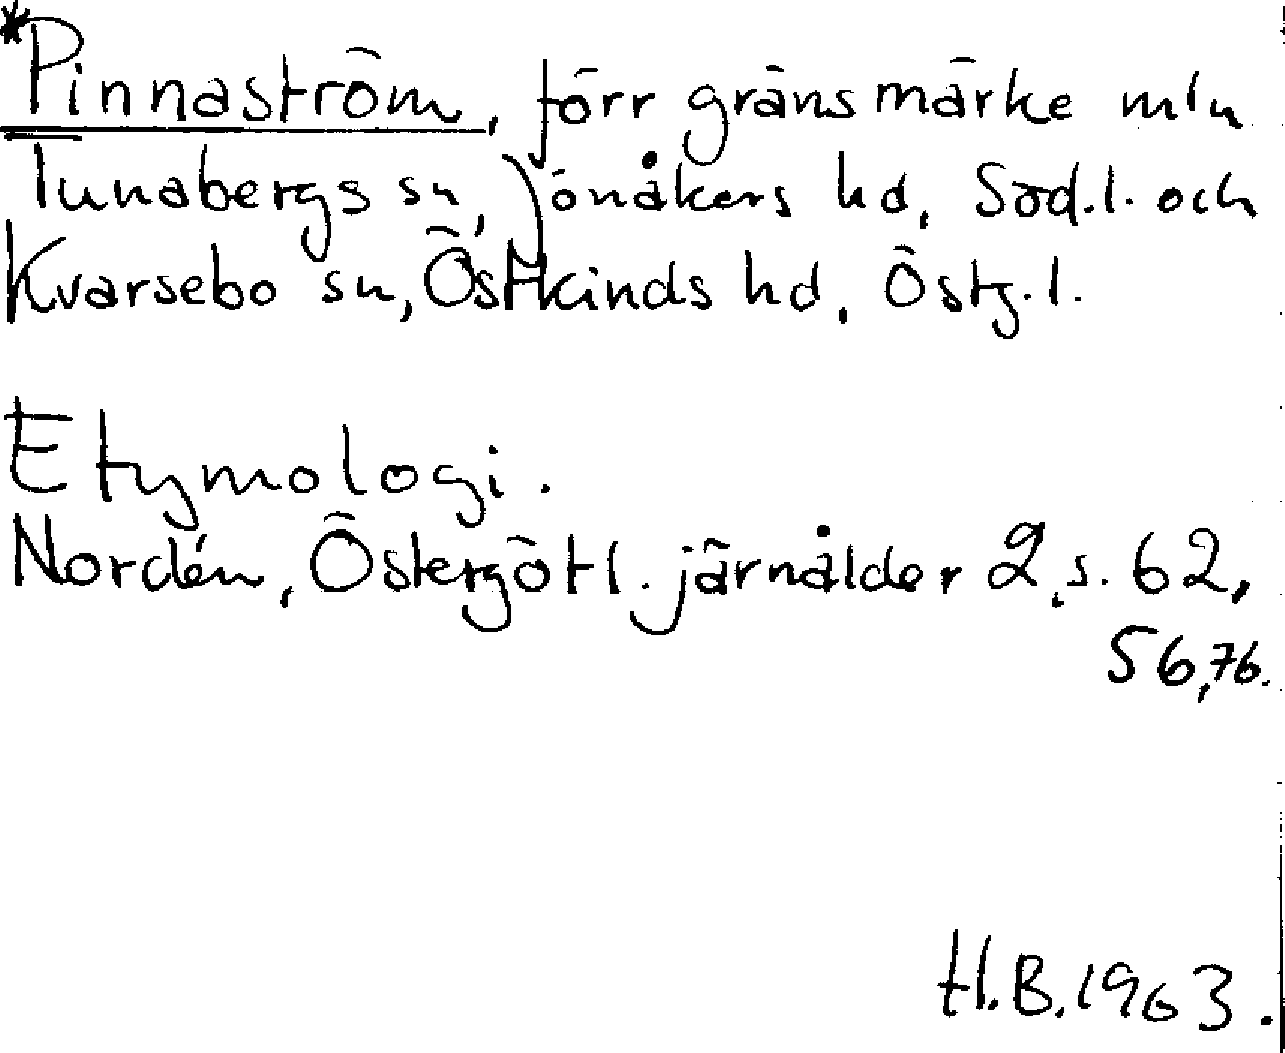 *Pinnaström, förr gränsmärke mln
Tunabergs sn, Jönåkers hd, Söd.l. och
Kvarsebo sn, Östkinds hd, Östg.l.
Etymologi.
Nordén, Östergötl. järnålder 2, s. 62,
56, 76.
H.B. 1963.